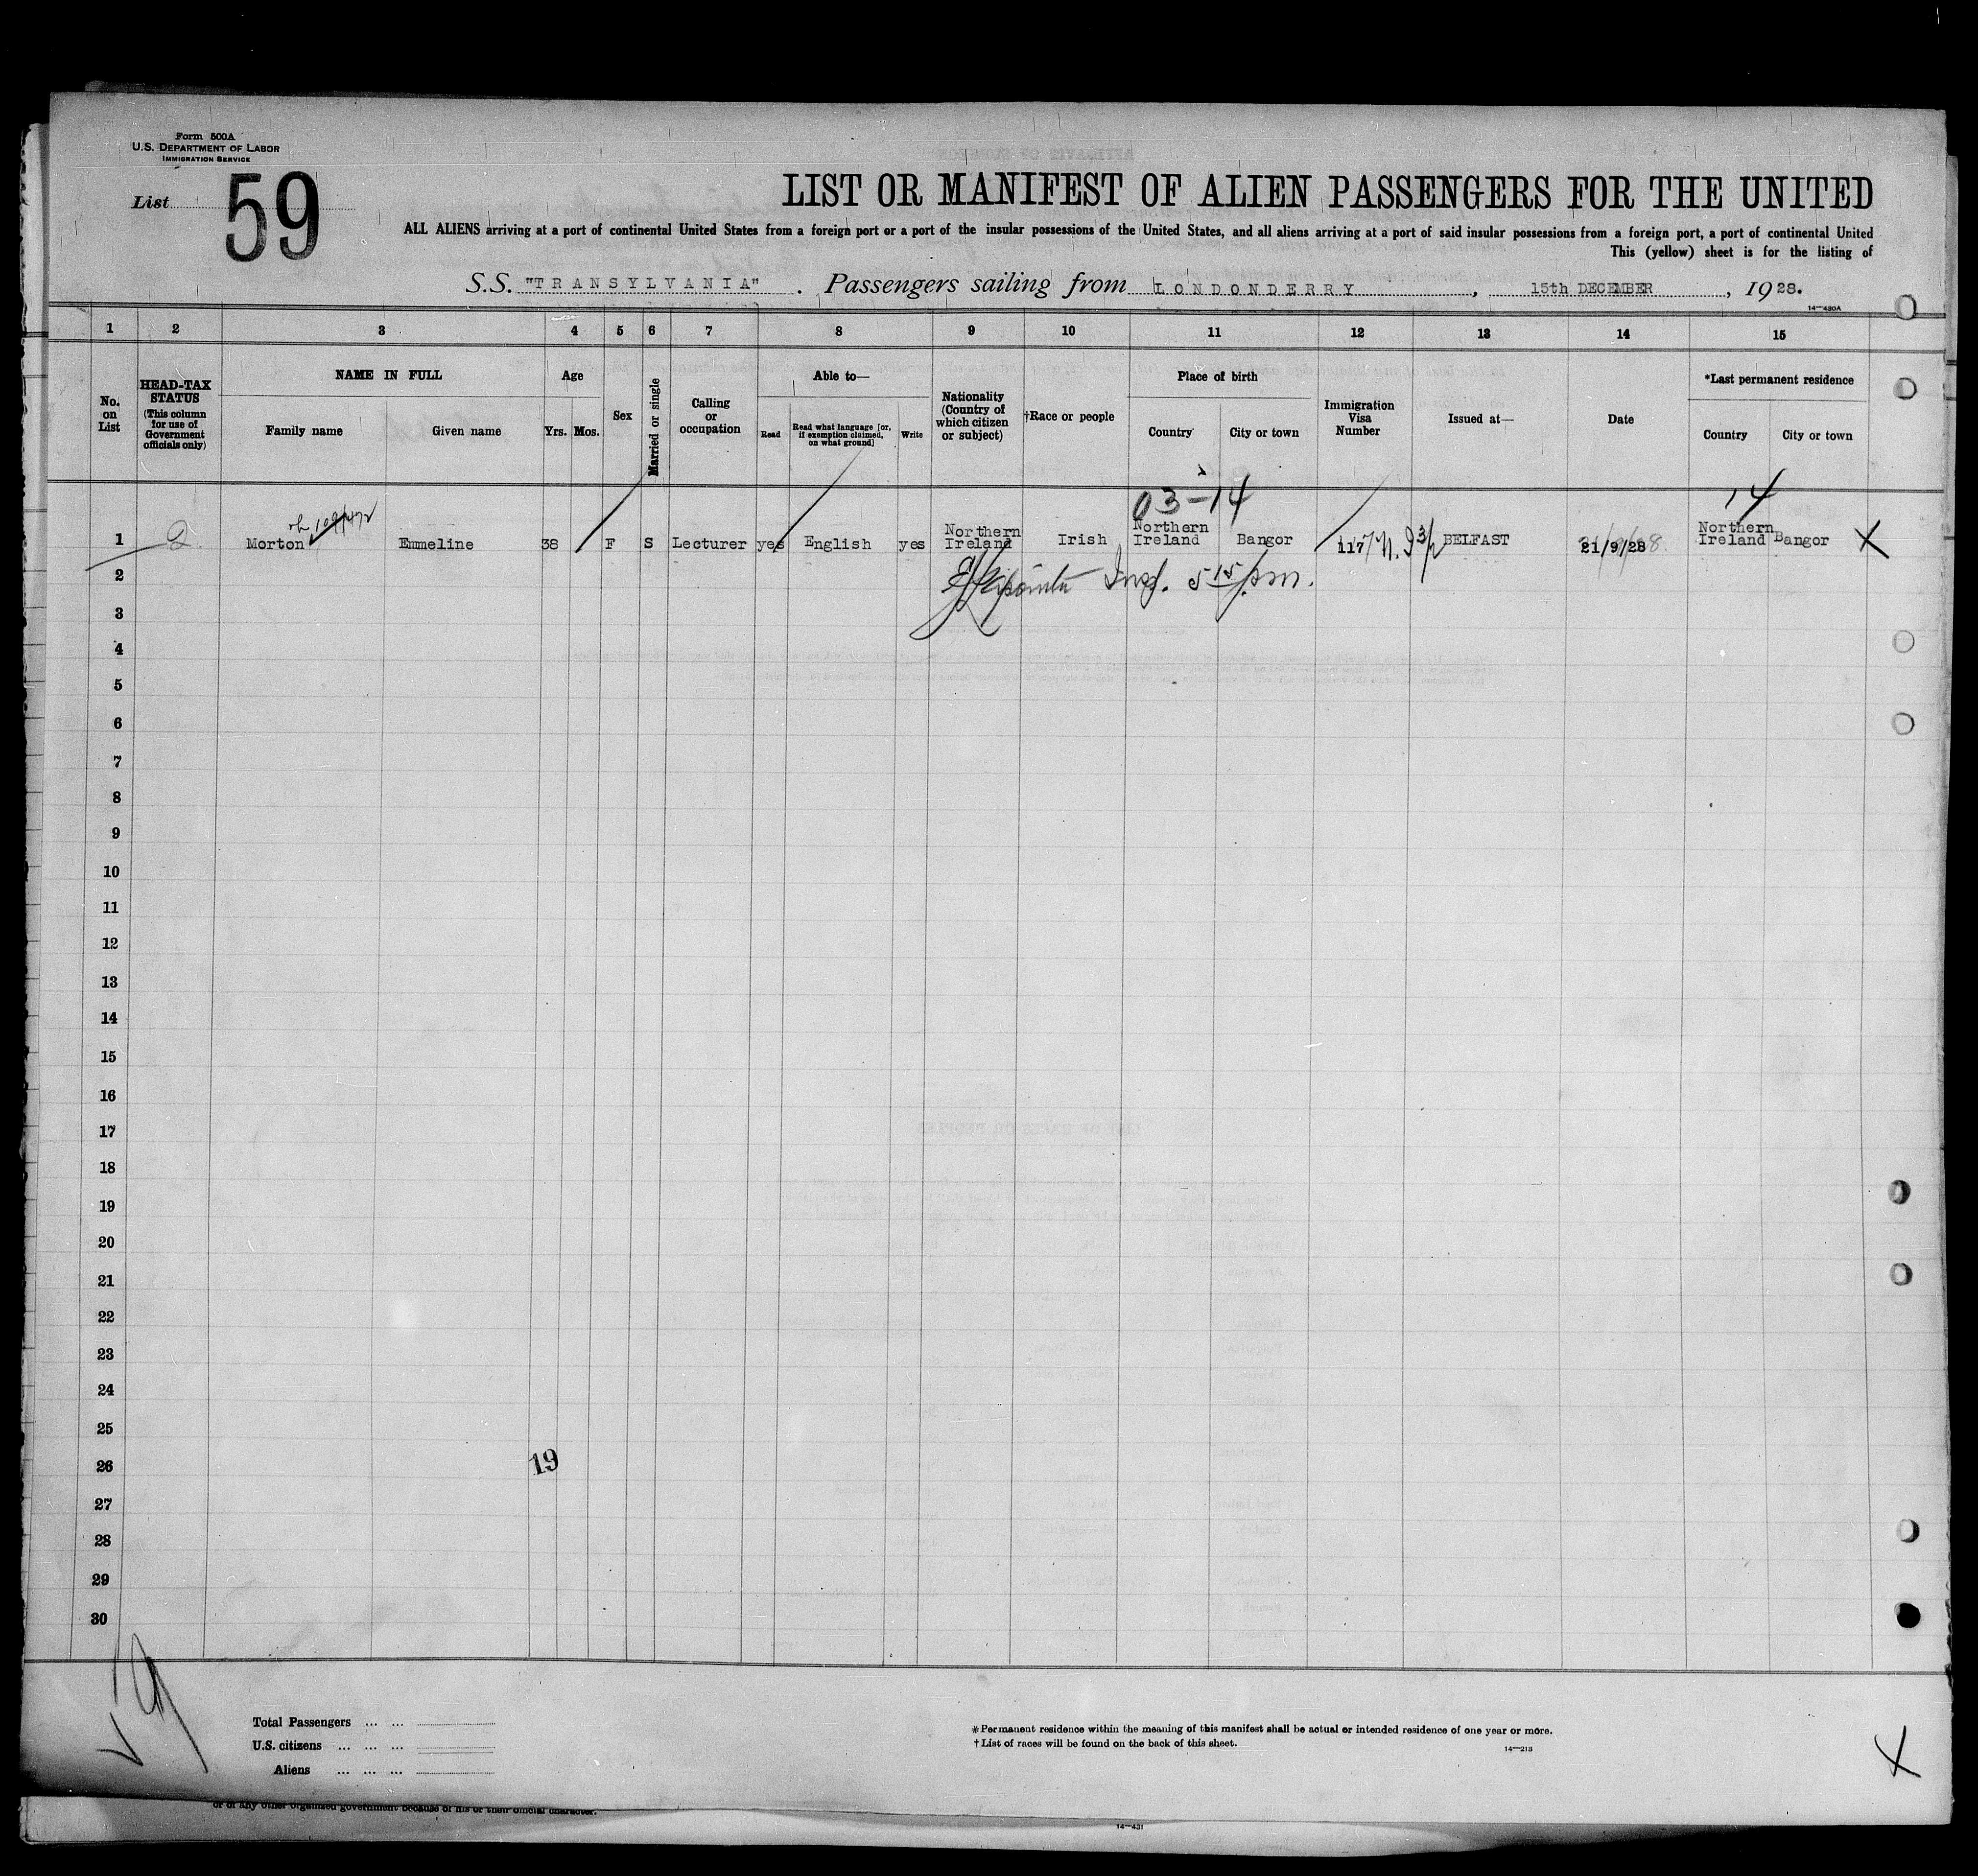 Form 500A
U.S. DEPARTMENT OF LABOR
IMMIGRATION SERVICE
List 59
LIST OR MANIFEST OF ALIEN PASSENGERS FOR THE UNITED
ALL ALIENS arriving at a port of continental United States from a foreign port or a port of the insular possessions of the United States, and all aliens arriving at a port of said insular possessions from a foreign port, a port of continental United
This (yellow) sheet is for the listing of
S.S. "TRANSYLVANIA". Passengers sailing from LONDONDERRY, 15th DECEMBER, 1928.
14—430A
1 2 3 4 5 6 7 8 9 10 11 12 13 14 15
No. on List
HEAD-TAX STATUS (This column for use of Government officials only)
NAME IN FULL
Family name Given name
Age
Yrs. Mos.
Sex
Married or single
Calling or occupation
Able to—
Read Read what language [or, if exemption claimed, on what ground] Write
Nationality (Country of which citizen or subject)
†Race or people
Place of birth
Country City or town
Immigration Visa Number
Issued at—
Date
*Last permanent residence
Country City or town
03-14 14
1 2 Morton Emmeline 38 F S Lecturer yes English yes Northern Ireland Irish Northern Ireland Bangor 117 BELFAST 21/9/28 Northern Ireland Bangor X
2 Insp. 5 15 p.m.
3
4
5
6
7
8
9
10
11
12
13
14
15
16
17
18
19
20
21
22
23
24
25
26 19
27
28
29
30
Total Passengers ... ...
U.S. citizens ... ... ...
Aliens ... ... ...
*Permanent residence within the meaning of this manifest shall be actual or intended residence of one year or more.
†List of races will be found on the back of this sheet.
14—213
X
or of any other organized government because of his or their official character.
14—431